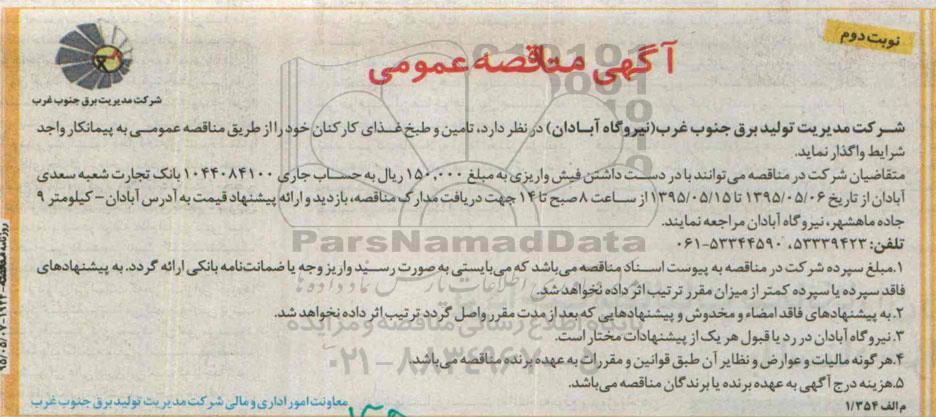 نوبت دوم
آگهی مناقصه عمومی
شرکت مدیریت برق جنوب غرب
شرکت مدیریت تولید برق جنوب غرب(نیروگاه آبادان) در نظر دارد، تامین و طبخ غذای کارکنان خود را از طریق مناقصه عمومی به پیمانکار واجد
شرایط واگذار نماید.
متقاضیان شرکت در مناقصه می توانند با در دست داشتن فیش واریزی به مبلغ ۱۵۰,۰۰۰ ریال به حساب جاری ۱۰۴۴۰۸۴۱۰۰ بانک تجارت شعبه سعدی
آبادان از تاریخ ۱۳۹۵/۰۵/۰۶ تا ۱۳۹۵/۰۵/۱۵ از ساعت ۸ صبح تا ۱۴ جهت دریافت مدارک مناقصه، بازدید و ارائه پیشنهاد قیمت به آدرس آبادان - کیلومتر ۹
جاده ماهشهر، نیروگاه آبادان مراجعه نمایند.
تلفن: ۵۳۳۳۹۴۲۳، ۵۳۳۴۴۵۹۰-۰۶۱
ParsNamadData
۱.مبلغ سپرده شرکت در مناقصه به پیوست اسناد مناقصه می‌باشد که می‌بایستی به صورت رسید واریز وجه یا ضمانت‌نامه بانکی ارائه گردد. به پیشنهادهای
فاقد سپرده یا سپرده کمتر از میزان مقرر ترتیب اثر داده نخواهد شد.
۲. به پیشنهادهای فاقد امضاء و مخدوش و پیشنهادهایی که بعد از مدت مقرر واصل گردد ترتیب اثر داده نخواهد شد.
پایگاه اطلاع رسانی مناقصه و مزایده
۳. نیروگاه آبادان در رد یا قبول هر یک از پیشنهادات مختار است.
۰۲۱-۸۸۳۴۹۶۷۰-۵
۴.هر گونه مالیات و عوارض و نظایر آن طبق قوانین و مقررات به عهده برنده مناقصه می‌باشد.
۵.هزینه درج آگهی به عهده برنده یا برندگان مناقصه می‌باشد.
م الف ۱/۳۵۴
معاونت امور اداری و مالی شرکت مدیریت تولید برق جنوب غرب